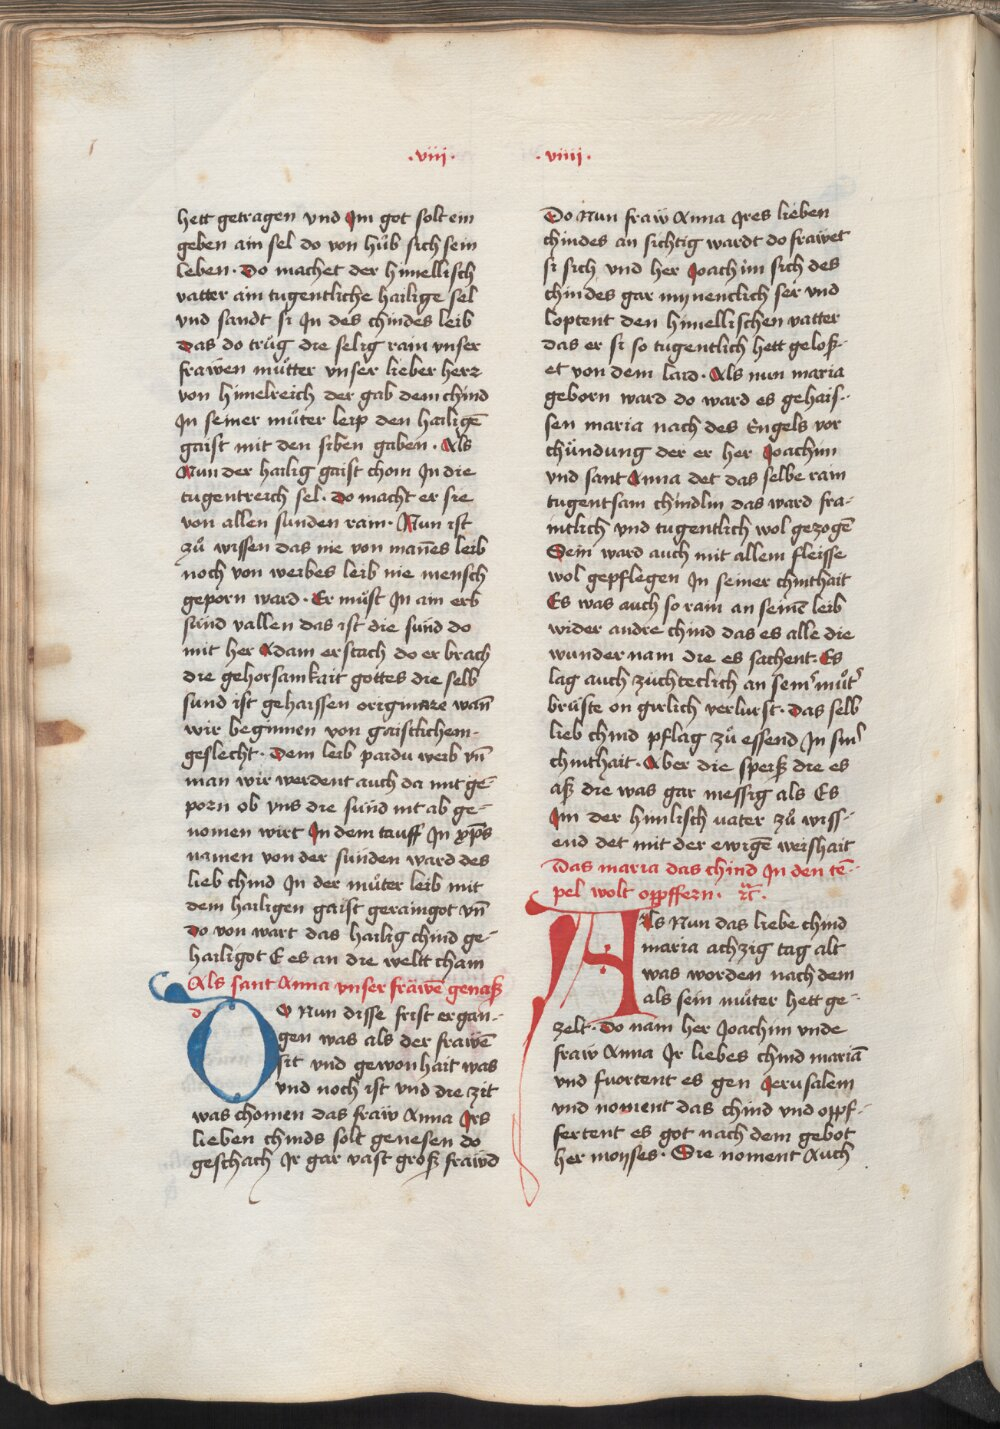 ·viij·
hett getragen vnd Im got solt ein
geben ain sel do von hůb sich sein
leben · Do machet der himellisch
vatter ain tugentliche hailige sel
vnd sandt si In des chindes leib
das do trůg die selig rain vnser
frawen můtter vnser lieber herr
von himelreich der gab dem chind
In seiner můter leip den hailigē
gaist mit den siben gaben · Als
Nun der hailig gaist chom In die
tugentreich sel · Do macht er sie
von allen sunden rain · Nun ist
zů wissen das nie von manes leib
noch von weibes leib nie mensch
geporn ward · Er můst In ain erb
sund vallen das ist die sund do
mit her Adam erstach do er brach
die gehorsamkait gottes die selb
sund ist gehaissen originare wan̄
wir beginnen von gaistlichem
geslecht · Dem leib pardu weib vn̄
man wir werdent auch da mit ge-
porn ob vns die sund nit ab ge-
nomen wirt In dem tauff In xp̄s
namen von der sunden ward des
lieb chind In der můter leib mit
dem hailigen gaist geraingot vn̄
do von wart das hailig chind ge-
hailigot E es an die weltt cham
Als sant Anna vnser frawē genasz
DO Nun disse frist ergan-
gen was als der frawē
sit vnd gewonhait was
vnd noch ist vnd die zit
was chomen das fraw Anna Irs
lieben chinds solt genesen do
geschach Ir gar vast grosz frawd
·viiij·
Do Nun fraw Anna Ires lieben
chindes an sichtig wardt do frawet
si sich vnd her Joachim sich des
chindes gar mynenclich ser vnd
loptent den himellischen vatter
das er si so tugentlich hett gelosz-
et von dem laid · Als nun maria
geborn ward do ward es gehais-
sen maria nach des Engels vor
chündung der er her Joachim
vnd sant Anna det das selbe rain
tugentsam chindlin das ward fra-
intlich vnd tugentlich wol gezogē
Sein ward auch mit allem fleisse
wol gepflegen In seiner chinthait
Es was auch so rain an seinē leib
wider andre chind das es alle die
wunder nam die es sachent · Es
lag auch zuchteclich an seinr můtr
brüste on girlich verlurst · Das selb
lieb chind pflag zů essend In sinr
chinthait · Aber die speisz die es
asz die was gar messig als Es
Im der himlisch uater zů wiss-
end det mit der ewigē weishait
Das maria das chind In den tē-
pel wolt oppffern ·
Als Nun das liebe chind
maria achzig tag alt
was worden nach dem
als sein můter hett ge-
zelt · Do nam her Joachim vnde
fraw Anna Ir liebes chind mariā
vnd fuortent es gen Jerusalem
vnd noment das chind vnd oppf-
fertent es got nach dem gebot
her moyses · Sie noment Auch